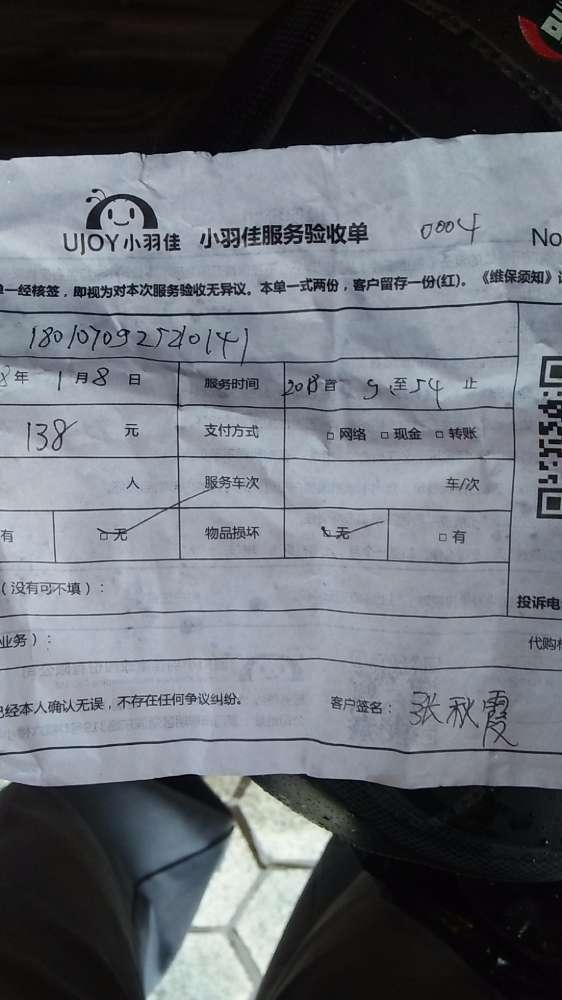 UJOY小羽佳 小羽佳服务验收单 0004 No
单一经核签，即视为对本次服务验收无异议。本单一式两份，客户留存一份(红)。《维保须知》
1801070925210141
8年 1月8日 服务时间 至54 止
138 元 支付方式 □网络 □现金 □转账
人 服务车次 车/次
有 □无 物品损坏 □无 □有
（没有可不填）：
投诉电
业务）： 代购
已经本人确认无误，不存在任何争议纠纷。 客户签名：张秋霞